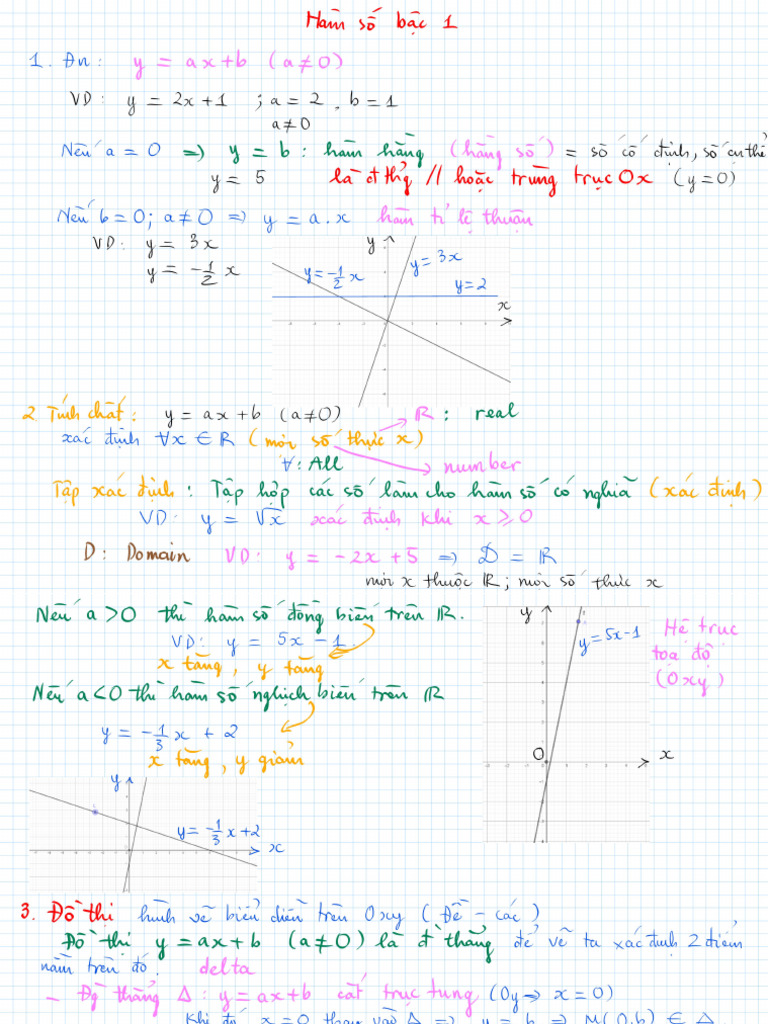 Hàm số bậc 1
1. Đn: y = ax+b (a≠0)
VD: y = 2x+1 ; a = 2, b = 1
a≠0
Nếu a = 0 => y = b : hàm hằng (hằng số) = số cố định, số cụ thể
y = 5 là đt thg // hoặc trùng trục Ox (y=0)
Nếu b=0; a≠0 => y = a.x hàm tỉ lệ thuận
VD: y = 3x
y = -1/2 x
y
y=-1/2 x
y= 3x
y=2
x
2. Tính chất: y = ax+b (a≠0) R : real
xác định ∀x ∈ R (mọi số thực x)
∀: All number
Tập xác định : Tập hợp các số làm cho hàm số có nghĩa (xác định)
VD: y = √x xác định khi x ⩾ 0
D: Domain VD: y = -2x+5 => D = R
mọi x thuộc R; mọi số thực x
Nếu a>0 thì hàm số đồng biến trên R.
VD: y = 5x-1.
x tăng, y tăng
Nếu a<0 thì hàm số nghịch biến trên R
y = -1/3 x + 2
x tăng, y giảm
y
y=5x-1
O
x
Hệ trục
toạ độ
(Oxy)
y
y= -1/3 x+2
x
3. Đồ thị hình vẽ biểu diễn trên Oxy (Đề - các)
Đồ thị y = ax+b (a≠0) là đt thẳng để vẽ ta xác định 2 điểm
nằm trên đó. delta
- Đg thẳng Δ: y=ax+b cắt trục tung (Oy → x=0)
Khi đó x=0 thay vào Δ => y = b => M(0,b) ∈ Δ